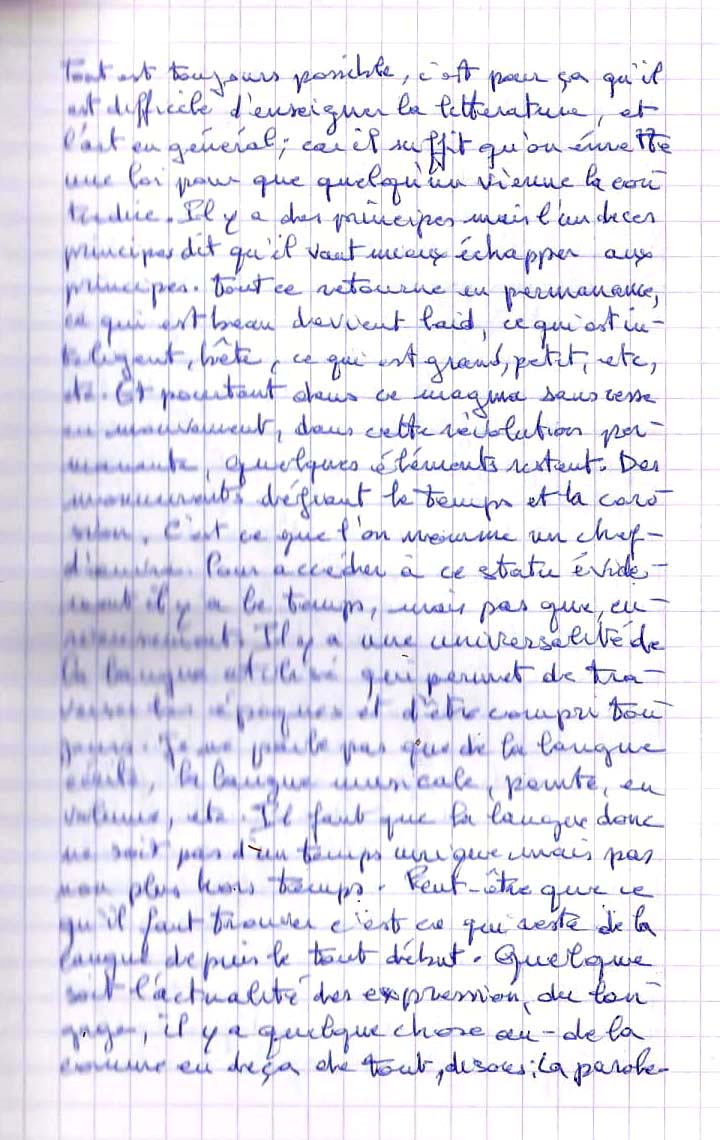 Tout est toujours possible, c'est pour ça qu'il
est difficile d'enseigner la litterature, et
l'art en général; car il suffit qu'on émette
une loi pour que quelqu'un vienne la con
tredire. Il y a des principes mais l'un de ces
principes dit qu'il vaut mieux échapper aux
principes. Tout ce retourne en permanance,
ce qui est beau devient laid, ce qui est in-
teligent, bête, ce qui est grand, petit, etc,
etc. Et pourtant dans ce magma sans cesse
en mouvement, dans cette révolution per-
manante, quelques éléments restent. Des
monuments défiant le temps et la coro
sion, c'est ce que l'on nomme un chef-
d'œuvre. Pour accéder à ce statu évide-
ment il y a le temps, mais pas que,

Il y a une universalité de
la langue utilisé qui permet de tra-
verser les époques et d'être compri tou
jours. Je ne parle pas que de la langue
écrite, la langue musicale, peinte, en
volume, etc. Il faut que la langue donc
ne soit pas d'un temps unique mais pas
non plus hors temps. Peut-être que ce
qu'il faut trouver c'est ce qui reste de la
langue depuis le tout début. Quelque
soit l'actualité des expression, du lan
gage, il y a quelque chose au-de la
comme en deça de tout, desous; la parole